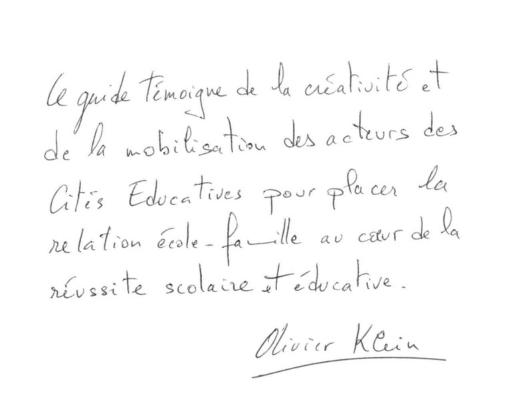 Ce guide témoigne de la créativité et
de la mobilisation des acteurs des
Cités Educatives pour placer la
relation école-famille au cœur de la
réussite scolaire et éducative.
Olivier Klein